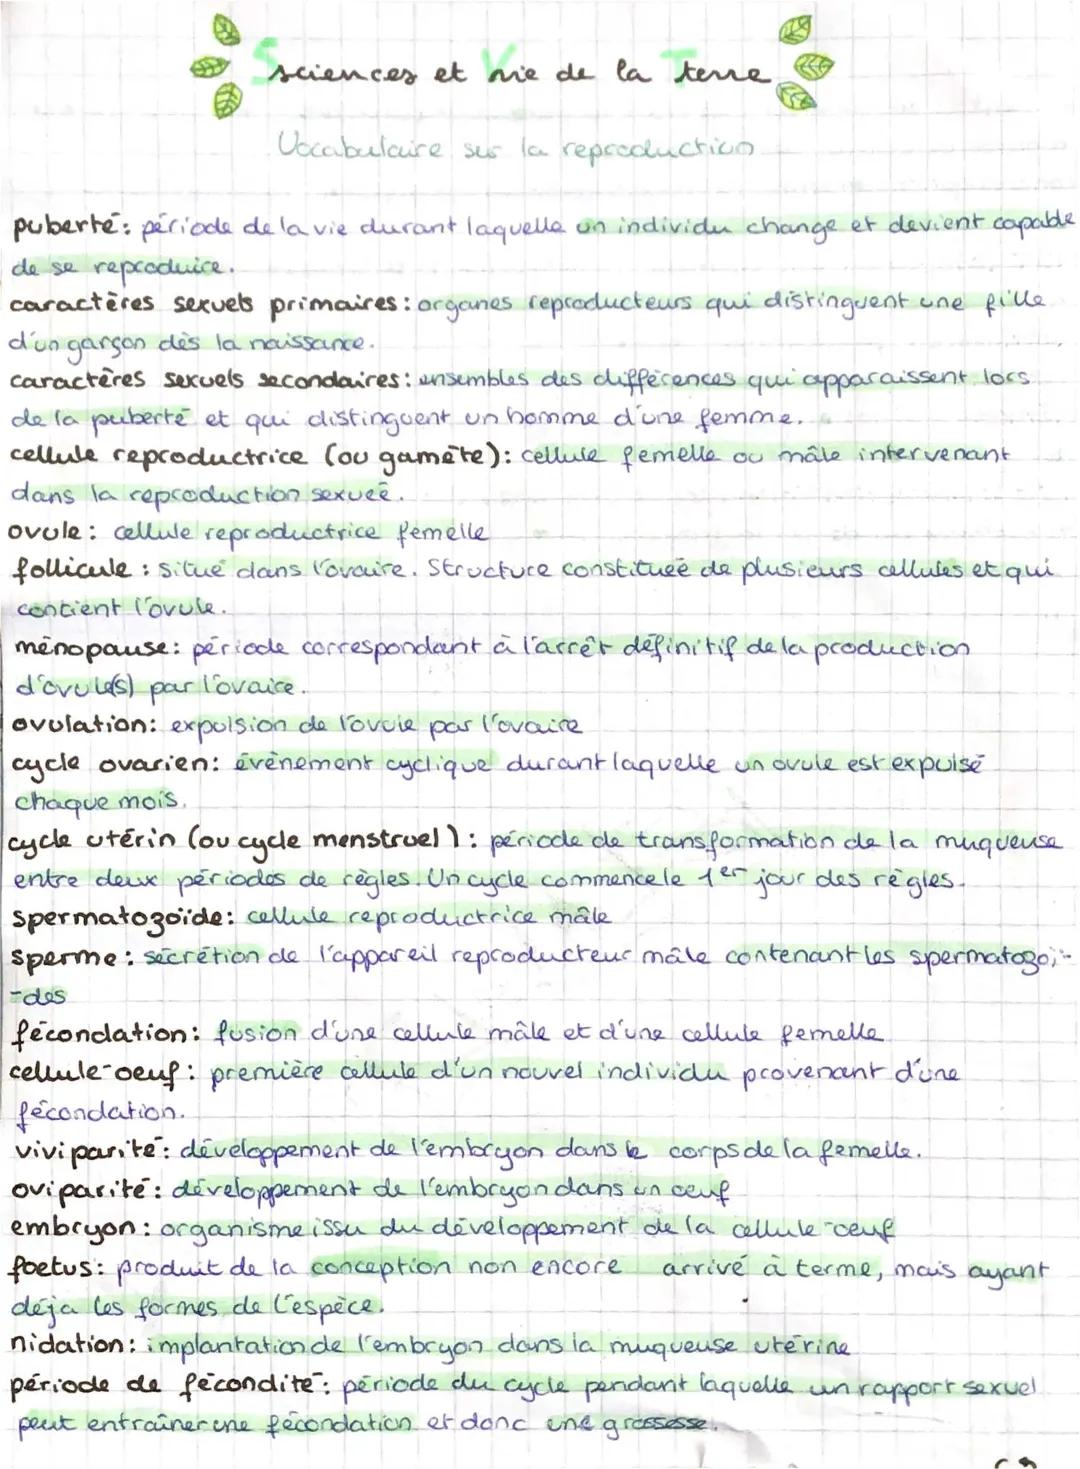 Sciences et Vie de la Terre
Vocabulaire sur la reproduction
puberté: période de la vie durant laquelle un individu change et devient capable
de se reproduire.
caractères sexuels primaires: organes reproducteurs qui distinguent une fille
d'un garçon dès la naissance.
caractères sexuels secondaires: ensembles des différences qui apparaissent lors
de la puberté et qui distinguent un homme d'une femme.
cellule reproductrice (ou gamète): cellule femelle ou mâle intervenant
dans la reproduction sexueé.
ovule: cellule reproductrice femelle
follicule: situé dans l'ovaire. Structure constitueé de plusieurs cellules et qui
contient l'ovule.
ménopause: période correspondant à l'arrêt définitif de la production
d'ovule(s) par l'ovaire.
ovulation: expulsion de l'ovule par l'ovaire
cycle ovarien: évènement cyclique durant laquelle un ovule est expulsé
chaque mois.
cycle utérin (ou cycle menstruel): période de transformation de la muqueuse
entre deux périodes de règles. Un cycle commence le 1er jour des règles.
spermatozoïde: cellule reproductrice mâle
sperme: sécrétion de l'appareil reproducteur mâle contenant les spermatozoï-
-des
fécondation: fusion d'une cellule mâle et d'une cellule femelle
cellule-oeuf: première cellule d'un nouvel individu provenant d'une
fécondation.
viviparité: développement de l'embryon dans le corps de la femelle.
oviparité: développement de l'embryon dans un oeuf
embryon: organisme issu du développement de la cellule-oeuf
foetus: produit de la conception non encore arrivé à terme, mais ayant
déja les formes de l'espèce.
nidation: implantation de l'embryon dans la muqueuse utérine
période de fécondité: période du cycle pendant laquelle un rapport sexuel
peut entraîner une fécondation et donc une grossesse.